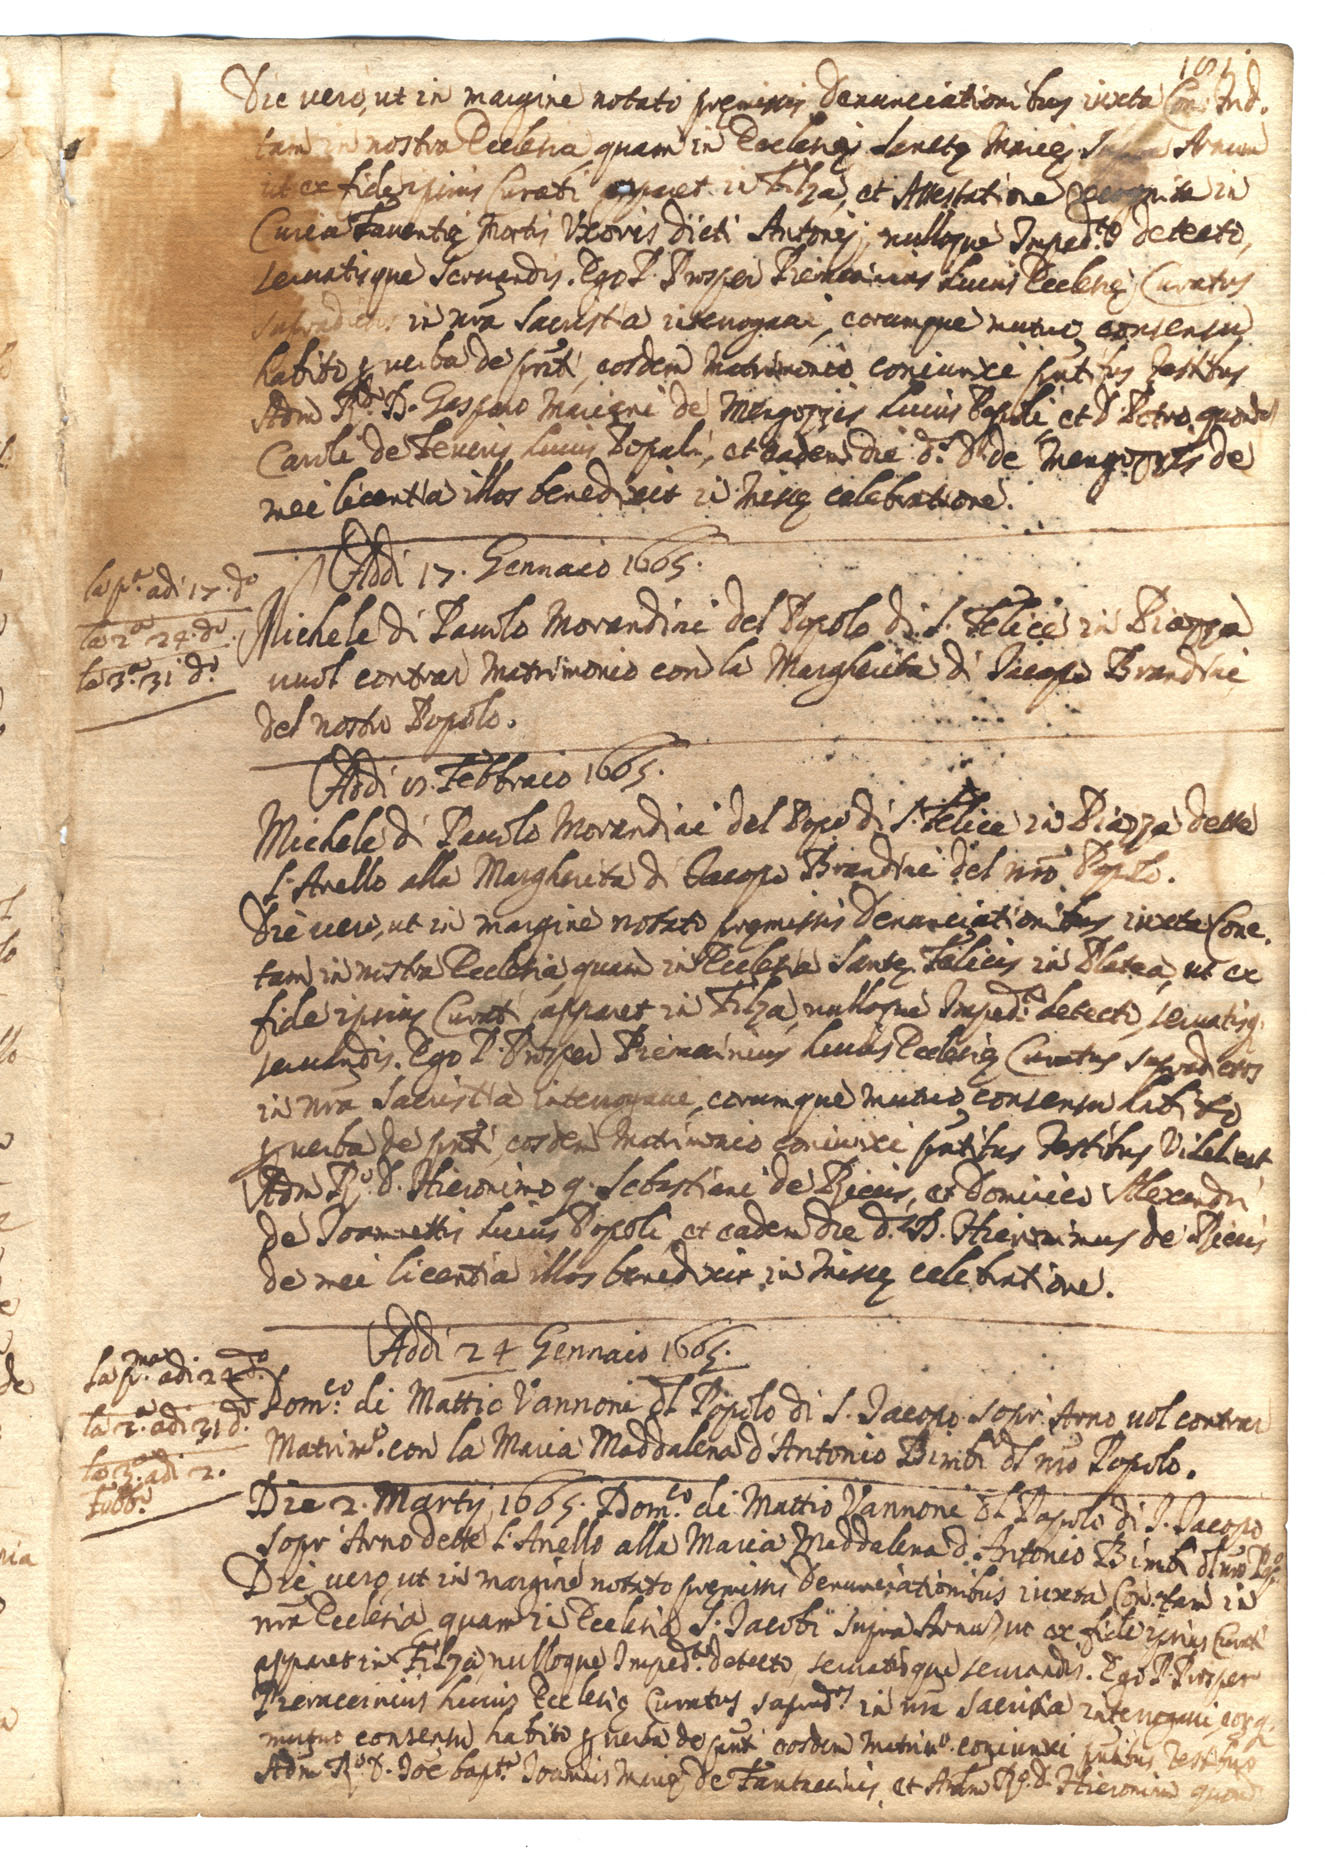 181
Die vero, ut in margine notato premissis Denunciationibus iuxta Con: Trid.
tam in nostra Ecclesia quam in Ecclesia Sancte Marie Supra Arnum
ut ex fide ipsius Curati apparet in Filza, et Attestatione recognita in
Curia Faventie Mortis Uxoris dicti Antonij, nulloque Imped.to detecto,
servatisque servandis. Ego P. Prosper Pieraccinius huius Ecclesie Curatus
supradictos in nra Sacristia interrogavi, eorumque mutuo consensu
habito p verba de pnti, eosdem Matrimonio coniunxi pntibus Testibus
Adm R.do D. Gasparo Mariani de Mengozzis huius Populi, et D. Petro quond
Caroli de Feueris huius Populi, et eadem die d.s D. de Mengozzis de
mei licentia illos benedixit in Misse celebratione.
Addi 17. Gennaio 1665.
la p.a adi 17. d.o
la 2.a 24. d.o
la 3.a 31 d.o
Michele di Pauolo Morandini del Popolo di S. Felice in Piazza
vuol contrar Matrimonio con la Margherita di Jacopo Brandini
del nostro Popolo.
Addi Febbraio 1665.
Michele di Pauolo Morandini del Popo di S. Felice in Piazza dette
l'Anello alla Margherita di Jacopo Brandini del nro Popolo.
Die vero, ut in margine notato premissis Denunciationibus iuxta Conc.
tam in nostra Ecclesia, quam in Ecclesia Sante Felicis in Platea, ut ex
fide ipsius Curati apparet in Filza, nulloque Imped.to detecto, servatisq.
servandis. Ego P. Prosper Pieraccinius huius Ecclesie Curatus supradictos
in nra Sacristia interrogavi, eorumque mutuo consensu habito
p verba de pnti eosdem Matrimonio coniunxi pntibus Testibus Videlicet
Adm R.do D. Hieronimo q. Sebastiani de Riccis, et Dominico Alexandri
de Joannettis huius Populi et eadem die d.s D. Hieronimus de Riccis
de mei licentia illos benedixit in Misse celebratione.
Addi 24 Gennaio 1665.
La p.ma adi 24 d.o
la 2.a adi 31 d.o
la 3.a adi 2.
Febb.o
Dom.co di Mattio Vannoni dl Popolo di S. Jacopo sopr'Arno vol contrar
Matrim.o con la Maria Maddalena d'Antonio Bimbi dl nro Popolo.
Die 2. Martij 1665. Dom.co di Mattio Vannoni dl Popolo di S. Jacopo
sopr'Arno dette l'Anello alla Maria Maddalena d'Antonio Bimbi dl nro Pop.
Die vero, ut in margine notato premissis Denunciationibus iuxta Con: tam in
nra Ecclesia quam in Ecclesia S. Jacobi supra Arnu, ut ex fide ipsius Curati
apparet in Filza nulloque Imped.to detecto, servatisque servandis. Ego P. Prosper
Pieraccinius huius Ecclesie Curatus suprad.os in nra Sacristia interrogavi eorq.
mutuo consensu habito p verba de pnti eosdem Matrim.o coniunxi pntibus Testibus
Adm R.do D. Joe Bapt.a Joannis Marie de Fantaccinis, et Adm R.do D. Hieronimo quond